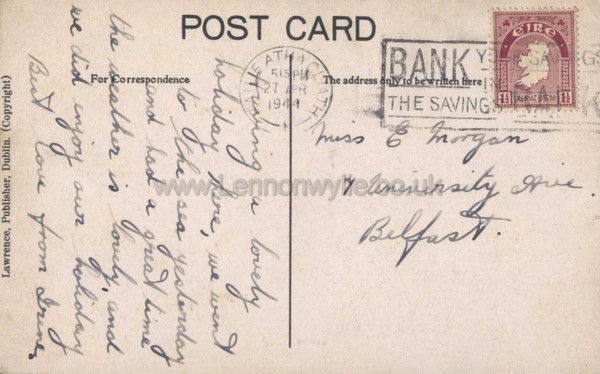 POST CARD
For Correspondence
The address only to be written here
BAILE ÁTHA CLIATH
515PM
27 APR
1944
BANK YOUR SAVINGS
IN
THE SAVINGS BANK
éIRe
1½
1½
Miss E Morgan
7 University Ave.
Belfast.
Having a lovely
holiday here, we went
to the sea yesterday
and had a great time
the weather is lovely, and
we did enjoy our holiday
Best love from Irene.
Lawrence, Publisher, Dublin. (Copyright)
www.Lennonwylie.co.uk